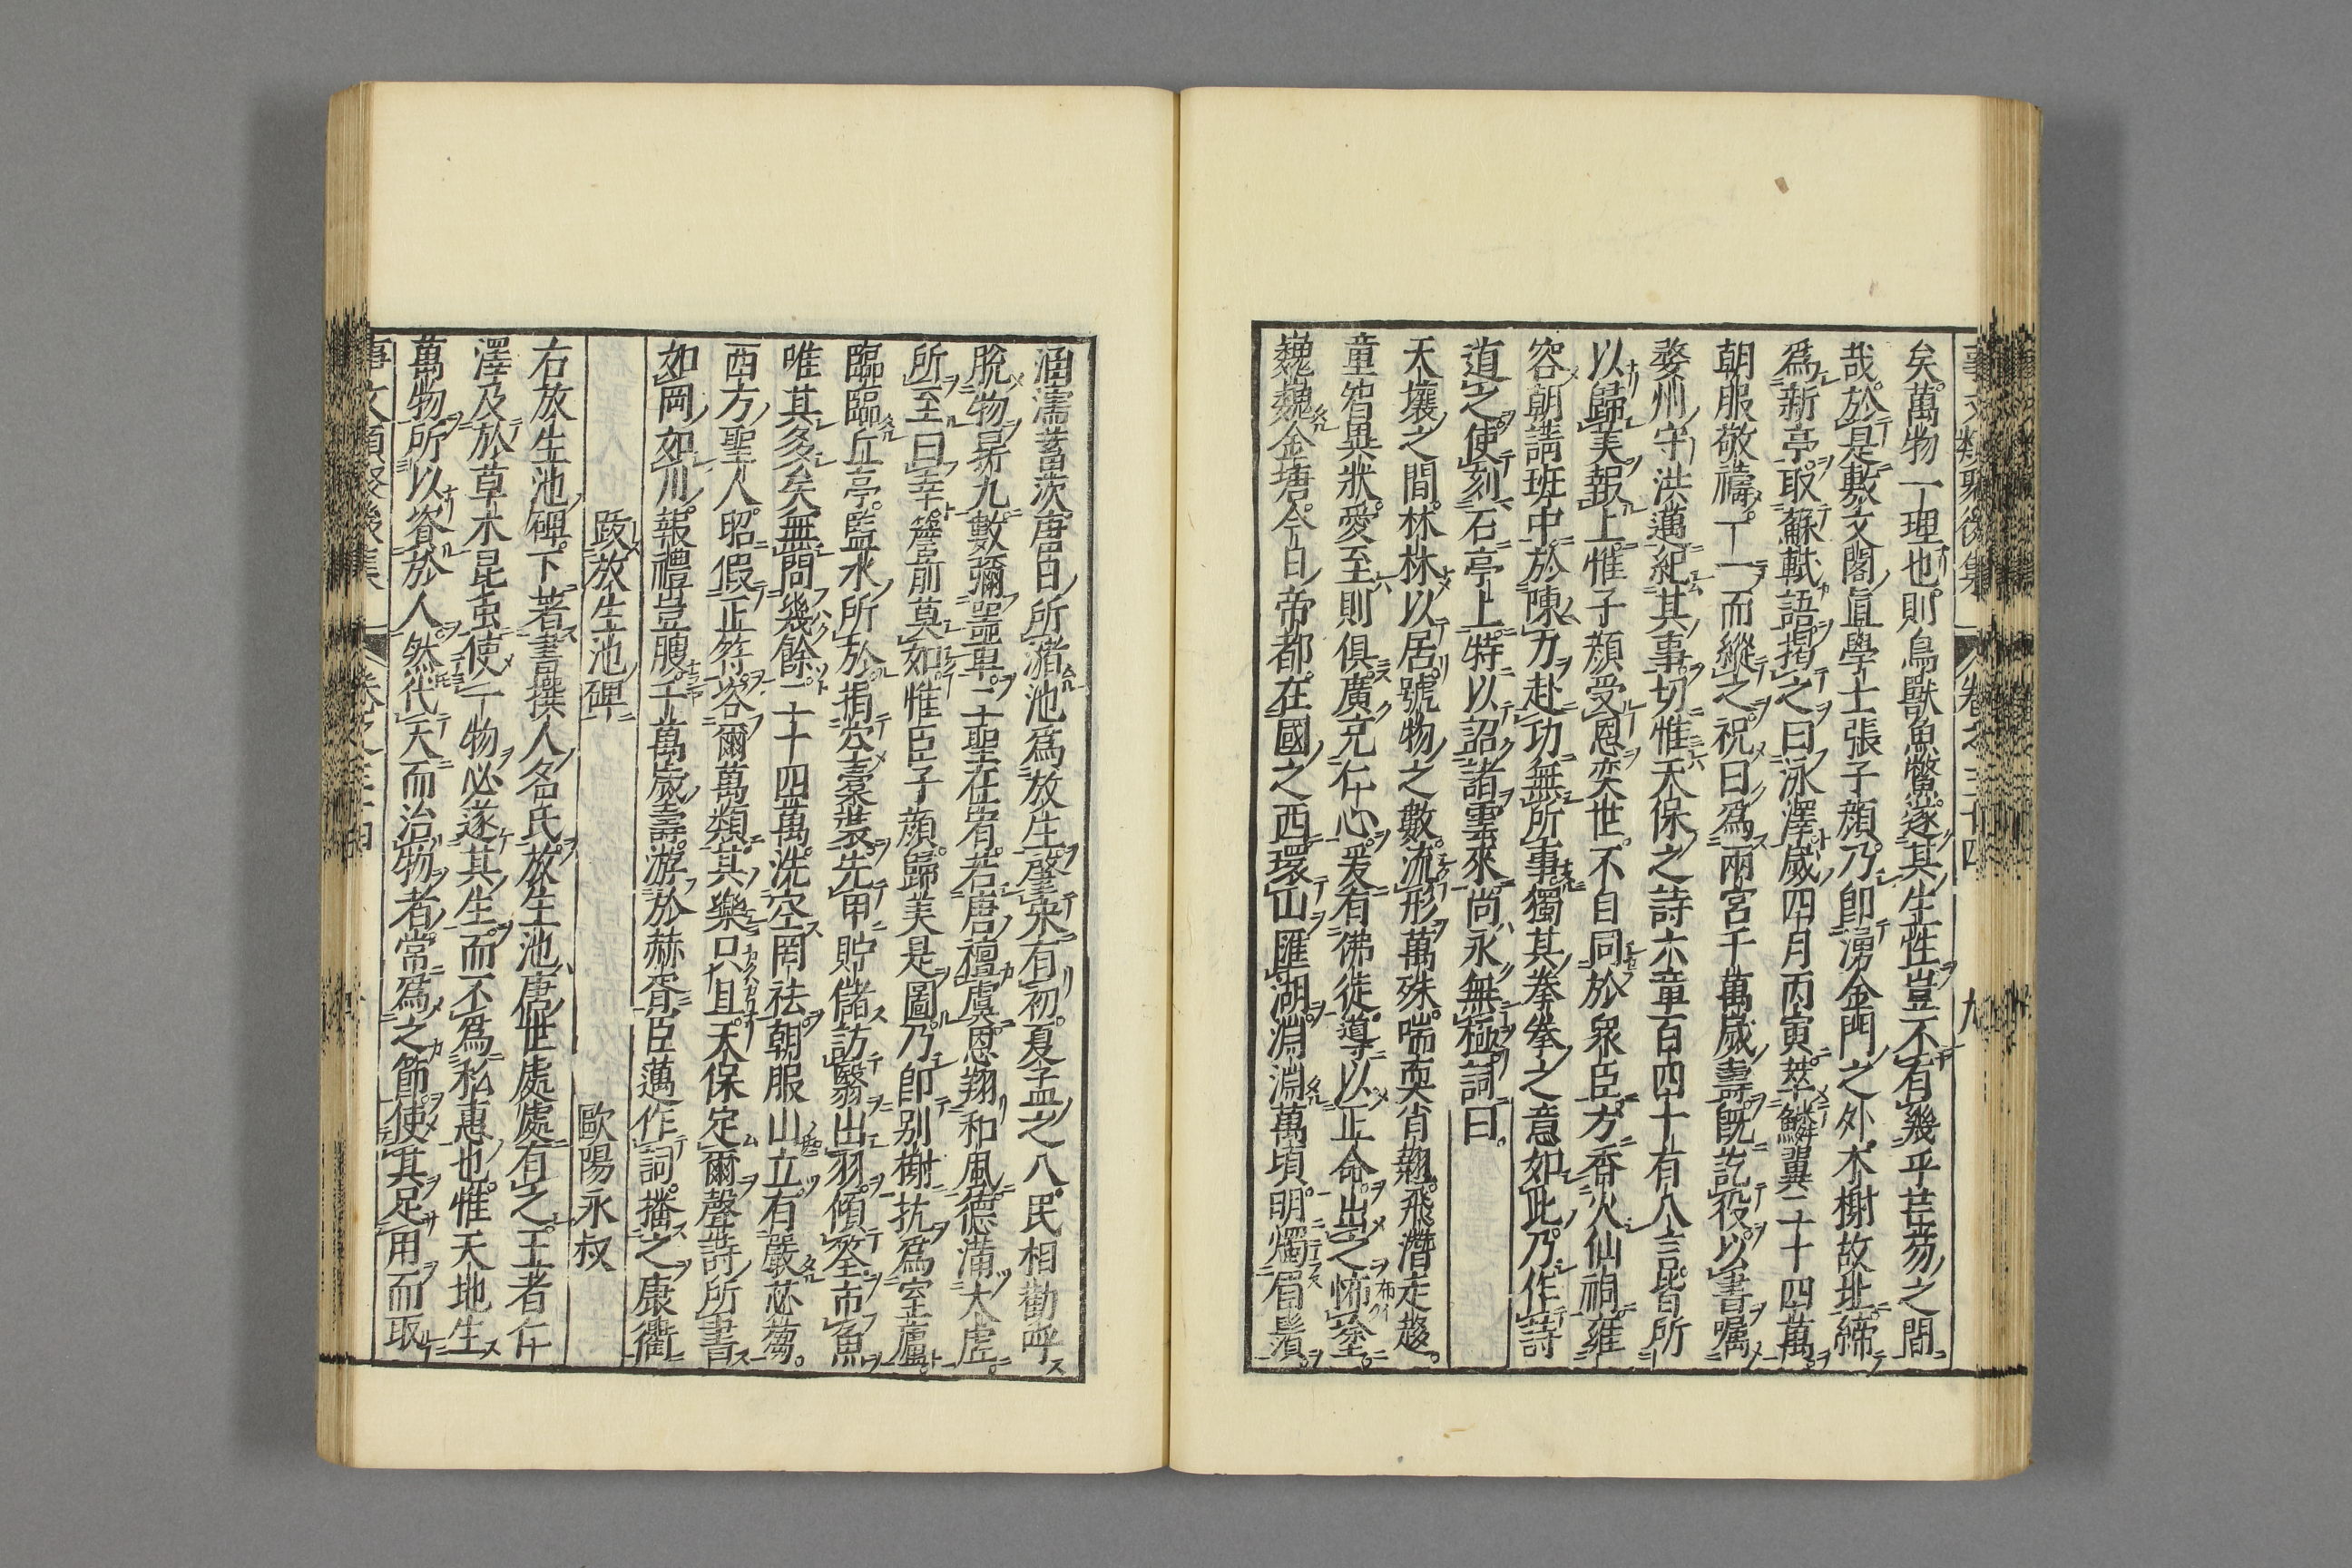 事文類聚後集 卷之三十四 九
矣萬物一理也則鳥獸魚鱉遂其生性豈不有幾乎芒芴之間
哉於是敷文閣直學士張子顏乃即湧金門之外木榭故址締
爲新亭取蘇軾語揭之曰泳澤歲四月丙寅萃鱗翼二十四萬
朝服敬禱一一而縱之祝曰爲兩宮千萬歲壽既訖役以書囑
婺州守洪邁紀其事切惟天保之詩六章百四十有八言皆所
以歸美報上惟子顏受恩奕世不自同於衆臣方香火仙祠雍
容朝請班中於陳力赴功無所事獨其拳拳之意如此乃作詩
道之使刻石亭上特以詔諸雲來尚永無極詞曰
天壤之間林林以居號物之數流形萬殊喘耎肖翹飛潛走趨
童智異狀愛至則俱廣充仁心爰有佛徒導以正命出之怖塗
巍巍金塘今白帝都在國之西環山匯湖淵淵萬頃明燭眉鬚
涵濡蓄茨唐曰所瀦池爲放生肇宋有初夏孟之八民相勸呼
脫物罻九數彌罛車二聖在宥若唐襢虞恩翔和風德滿大虛
所至曰幸簷前莫如惟臣子顏歸美是圖乃卽别榭抗爲室廬
臨臨丘亭監水所於捐空橐裝先甲貯儲訪翳出羽傾筌市魚
唯其多矣無問幾餘二十四萬洗空罔祛朝服山立有嚴苾蒭
西方聖人昭假正符咨爾萬類其樂只且天保定爾聲詩所書
如岡如川報禮豈䐁千萬歲壽游於赫胥臣邁作詞播之康衢
跋放生池碑 歐陽永叔
右放生池碑下著書撰人名氏放生池唐世處處有之王者仁
澤及於草木昆虫使一物必遂其生而不爲私惠也惟天地生
萬物所以資於人然代天而治物者常爲之節使其足用而取
事文類聚後集 卷之三十四